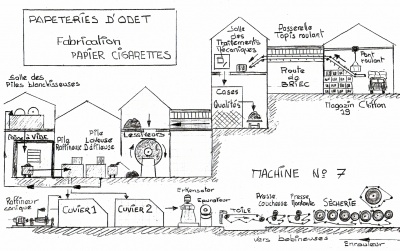 PAPETERIES D'ODET
Fabrication
PAPIER CIGARETTES
Salle des
Piles blanchisseuses
Salle
des
Traitements
Mécaniques
Passerelle
Tapis roulant
Pont
roulant
Route
de
BRIEC
Cases
Qualités
Magasin Chiffon
Pile
Laveuse
Défileuse
Pile
Raffineuse
Lessiveurs
MACHINE No 7
Raffineur
conique
CUVIER 1
CUVIER 2
Epurateur
TOILE
Presse
coucheuse
Presse
Montante
SÉCHERIE
Vers bobineuses
Enrouleur